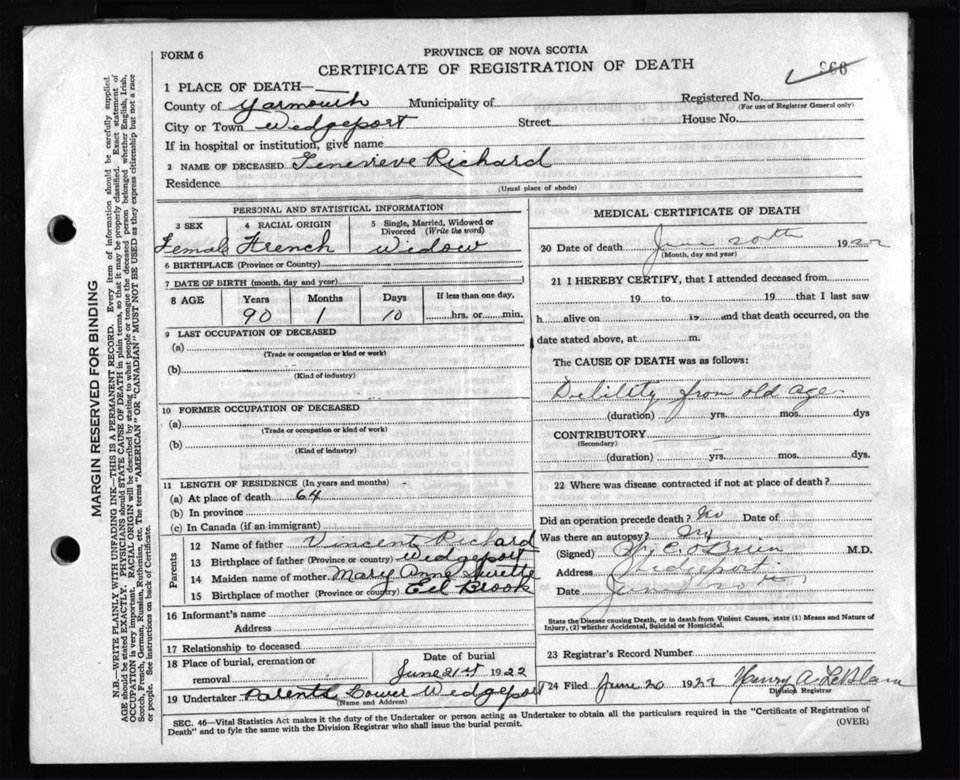 FORM 6
PROVINCE OF NOVA SCOTIA
CERTIFICATE OF REGISTRATION OF DEATH
MARGIN RESERVED FOR BINDING
N.B.—WRITE PLAINLY WITH UNFADING INK—THIS IS A PERMANENT RECORD. Every item of information should be carefully supplied.
AGE should be stated EXACTLY. PHYSICIANS should STATE CAUSE OF DEATH in plain terms, so that it may be properly classified. Exact statement of
OCCUPATION is very important. RACIAL ORIGIN will be described by stating to what people or tongue the deceased person belonged whether English, Irish,
Scotch, French, German, Russian, Ruthenian, etc. The terms "AMERICAN" OR "CANADIAN" MUST NOT BE USED as they express citizenship but not a race
or people. See instructions on back of Certificate.
1 PLACE OF DEATH—
County of Yarmouth Municipality of Registered No.
(For use of Registrar General only)
City or Town Wedgeport Street House No.
If in hospital or institution, give name
2 NAME OF DECEASED Genevieve Richard
Residence
(Usual place of abode)
PERSONAL AND STATISTICAL INFORMATION
3 SEX 4 RACIAL ORIGIN 5 Single, Married, Widowed or
Divorced (Write the word)
Female French Widow
6 BIRTHPLACE (Province or Country)
7 DATE OF BIRTH (month, day and year)
8 AGE Years Months Days If less than one day,
90 1 10 hrs. or min.
9 LAST OCCUPATION OF DECEASED
(a)
(Trade or occupation or kind or work)
(b)
(Kind of industry)
10 FORMER OCCUPATION OF DECEASED
(a)
(Trade or occupation or kind of work)
(b)
(Kind of industry)
11 LENGTH OF RESIDENCE (In years and months)
(a) At place of death 64
(b) In province
(c) In Canada (if an immigrant)
Parents
12 Name of father Vincent Richard
13 Birthplace of father (Province or country) Wedgeport
14 Maiden name of mother Mary Anne Surette
15 Birthplace of mother (Province or country) Eel Brook
16 Informant's name
Address
17 Relationship to deceased
18 Place of burial, cremation or
removal
Date of burial
June 21st 1922
19 Undertaker Parents Lower Wedgeport
(Name and Address)
MEDICAL CERTIFICATE OF DEATH
20 Date of death June 20th 1922
(Month, day and year)
21 I HEREBY CERTIFY, that I attended deceased from
19 to 19 that I last saw
h alive on 19 and that death occurred, on the
date stated above, at m.
The CAUSE OF DEATH was as follows:
Debility from old age
(duration) yrs. mos. dys
CONTRIBUTORY
(Secondary)
(duration) yrs. mos. dys.
22 Where was disease contracted if not at place of death?
Did an operation precede death? No Date of
Was there an autopsy? No
(Signed) C. O'Brien M.D.
Address Wedgeport
Date June
State the Disease causing Death, or in death from Violent Causes, state (1) Means and Nature of
Injury, (2) whether Accidental, Suicidal or Homicidal.
23 Registrar's Record Number
24 Filed June 20 1922 Henry A. LeBlanc
Division Registrar
SEC. 46—Vital Statistics Act makes it the duty of the Undertaker or person acting as Undertaker to obtain all the particulars required in the "Certificate of Registration of
Death" and to fyle the same with the Division Registrar who shall issue the burial permit. (OVER)